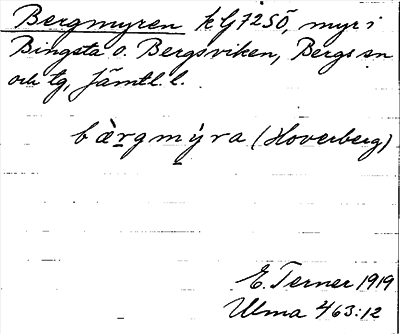 Bergmyren klj 72SÖ, myr i
Bingsta o. Bergsviken, Bergs sn
och tg, Jämtl. l.
bàrgmýra (Hoverberg)
E. Terner 1919
Ulma 463:12